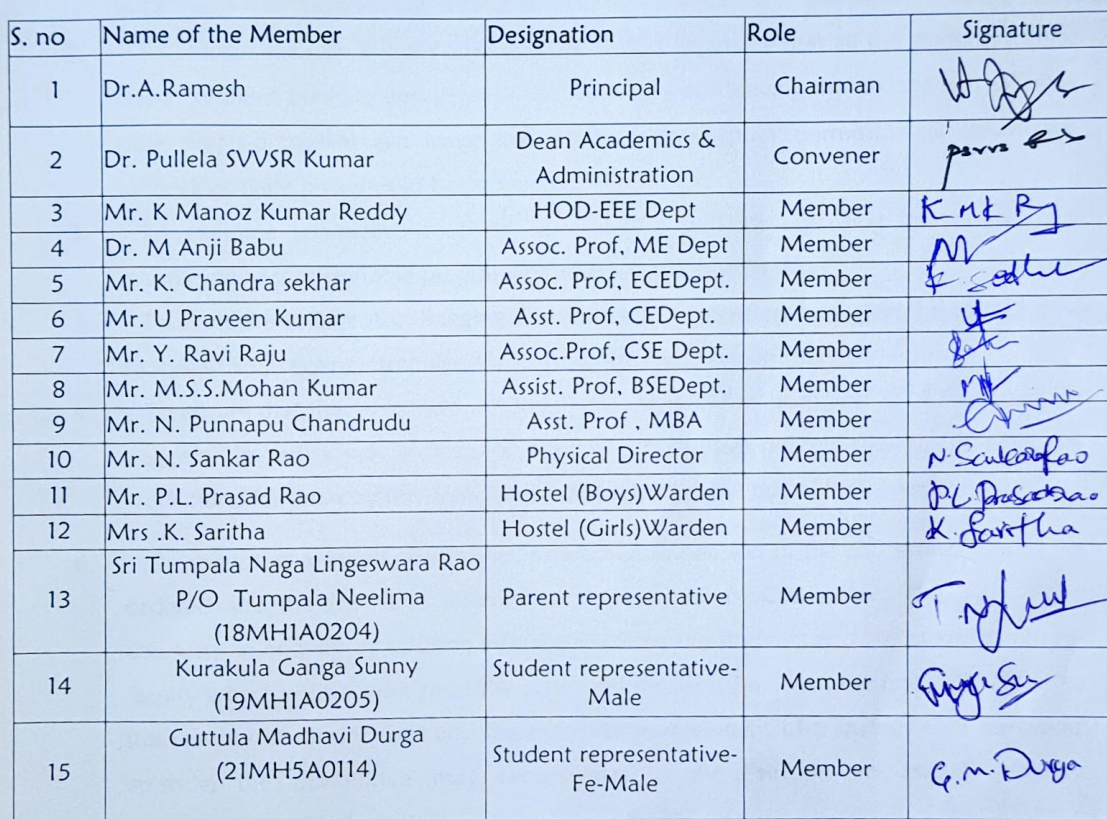 S. no Name of the Member Designation Role Signature
1 Dr.A.Ramesh Principal Chairman
2 Dr. Pullela SVVSR Kumar Dean Academics &
Administration Convener
3 Mr. K Manoz Kumar Reddy HOD-EEE Dept Member K M K R
4 Dr. M Anji Babu Assoc. Prof, ME Dept Member
5 Mr. K. Chandra sekhar Assoc. Prof, ECEDept. Member
6 Mr. U Praveen Kumar Asst. Prof, CEDept. Member
7 Mr. Y. Ravi Raju Assoc.Prof, CSE Dept. Member
8 Mr. M.S.S.Mohan Kumar Assist. Prof, BSEDept. Member
9 Mr. N. Punnapu Chandrudu Asst. Prof , MBA Member
10 Mr. N. Sankar Rao Physical Director Member N. Sankar Rao
11 Mr. P.L. Prasad Rao Hostel (Boys)Warden Member P.L. Prasad Rao
12 Mrs .K. Saritha Hostel (Girls)Warden Member K. Saritha
Sri Tumpala Naga Lingeswara Rao
13 P/O Tumpala Neelima Parent representative Member
(18MH1A0204)
14 Kurakula Ganga Sunny
(19MH1A0205) Student representative-
Male Member
15 Guttula Madhavi Durga
(21MH5A0114) Student representative-
Fe-Male Member G. M. Durga